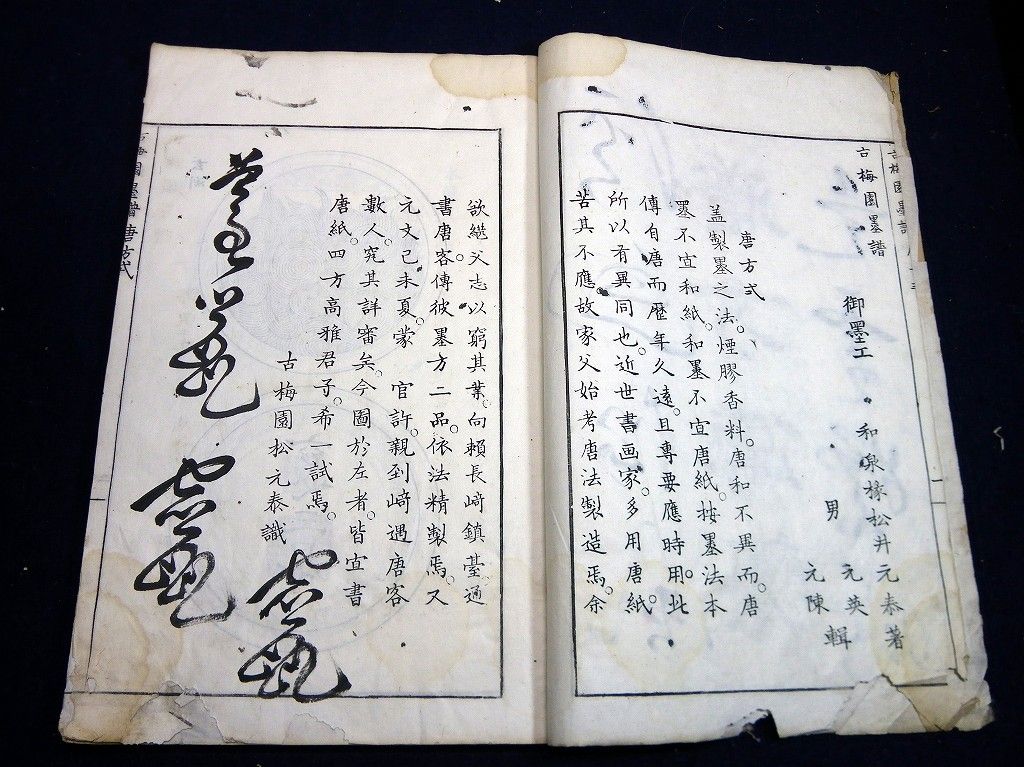 古梅園墨譜
御墨工 和泉掾松井元泰著
男 元英
元陳 輯
唐方式
蓋製墨之法。煙膠香料。唐和不異而。唐
墨不宜和紙。和墨不宜唐紙。按墨法本
傳自唐而歴年久遠。且專要應時用。此
所以有異同也。近世書画家。多用唐紙。
苦其不應。故家父始考唐法製造焉。余
欲継父志以窮其業。向頼長﨑鎮臺。通
書唐客。傳彼墨方二品。依法精製焉。又
元文己未夏。蒙 官許。親到﨑遇唐客
數人。究其詳審矣。今圖於左者。皆宜書
唐紙。四方高雅君子。希一試焉。
古梅園松元泰識
古梅園墨譜唐方式